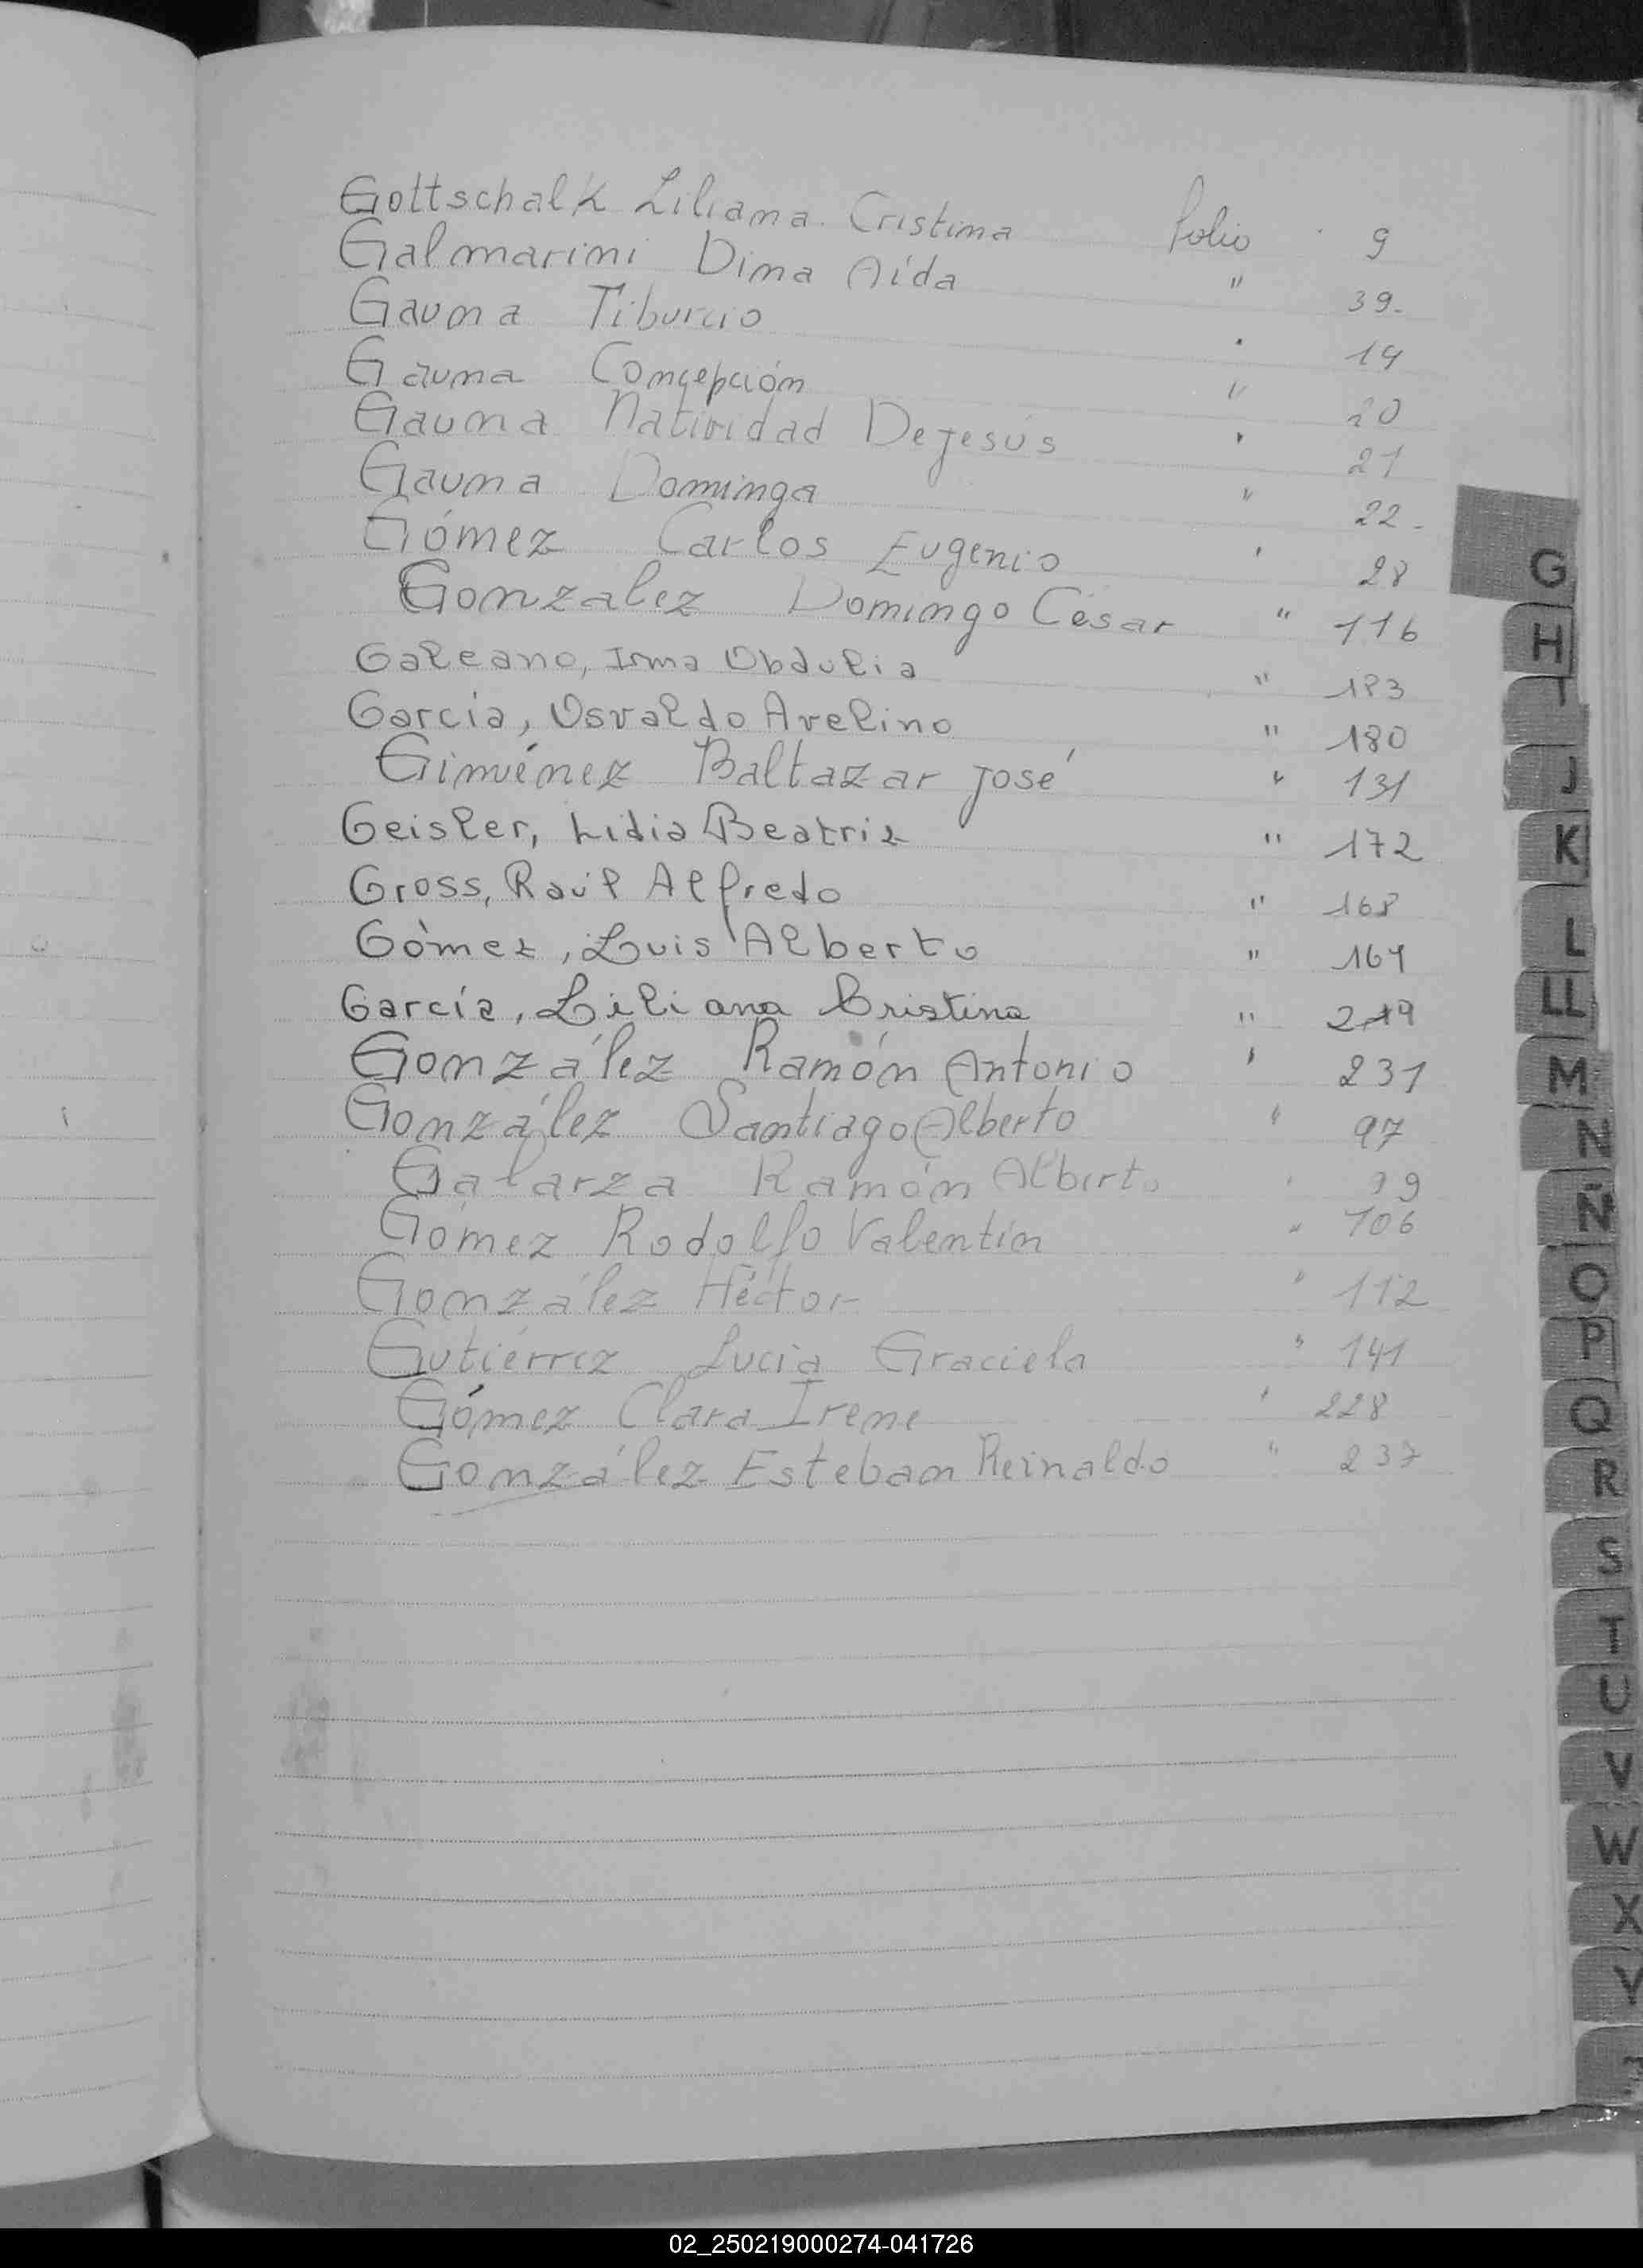 Gottschalk Liliana Cristina folio 9
Galmarini Dina Aída " 39.
Gauna Tiburcio " 19
Gauna Concepción " 20
Gauna Natividad De Jesús " 21
Gauna Dominga " 22.
Gómez Carlos Eugenio " 28
Gonzalez Domingo César " 116
Galeano, Irma Obdulia " 183
García, Osvaldo Avelino " 180
Giménez Baltazar José " 131
Geisler, Lidia Beatriz " 172
Gross, Raúl Alfredo " 168
Gómez, Luis Alberto " 164
García, Liliana Cristina " 219
González Ramón Antonio " 231
González Santiago Alberto " 97
Galarza Ramón Alberto "
Gómez Rodolfo Valentín " 106
González Héctor " 112
Gutiérrez Lucía Graciela " 141
Gómez Clara Irene " 228
González Esteban Reinaldo " 237
G
H
I
J
K
L
LL
M
N
Ñ
O
P
Q
R
S
T
U
V
W
X
Y
02_250219000274-041726